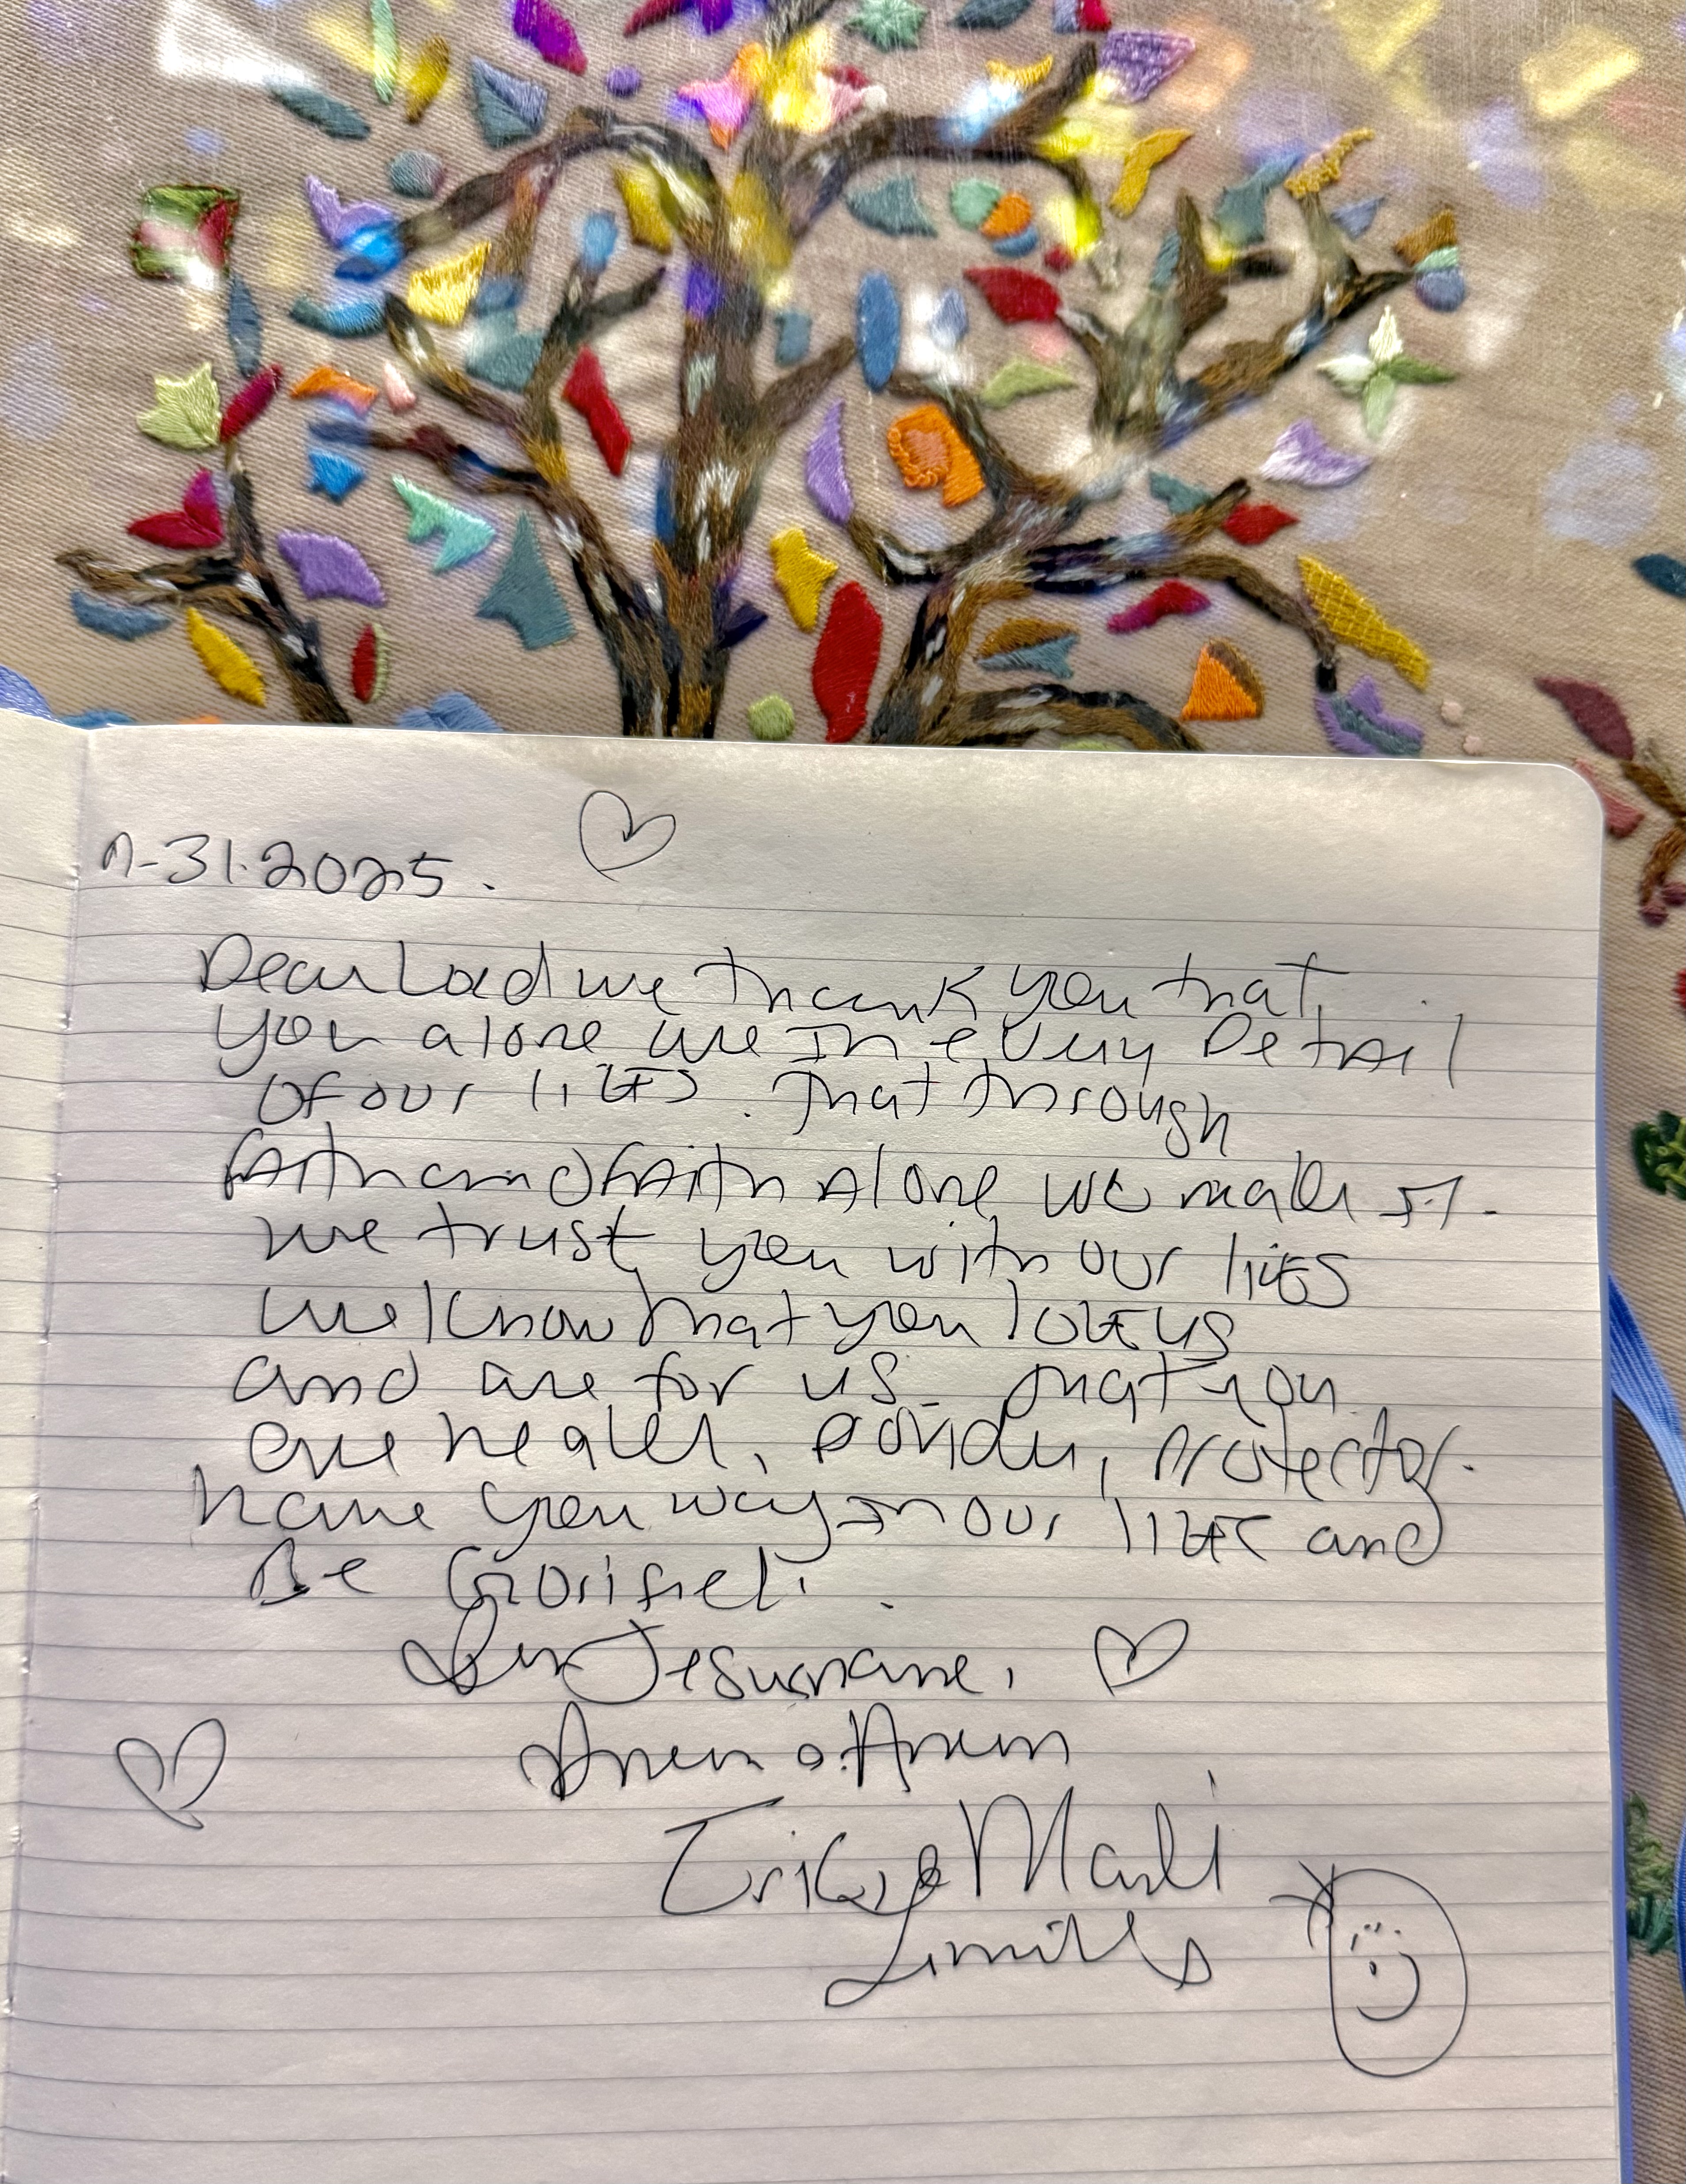 7-31-2025.
Dear Lord we thank you that
you alone are in every Detail
of our lives. That through
faith and faith alone we make it.
we trust you with our lives
we know that you love us
and are for us. That you
are healer, provider, protector.
have your way in our lives and
Be Glorified.
In Jesus name,
Amen & Amen